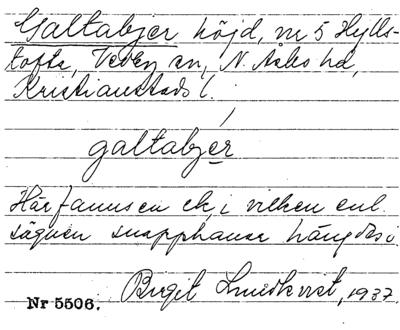 Galtabjer höjd, nr 5 Hylls-
tofta, Vedby sn, N. Åsbo hd,
Kristianstads l.
galtabjer
Här fanns en ek, i vilken enl.
sägnen snapphanar hängdes.
Birgit Lundkvist, 1937.
Nr 5506.